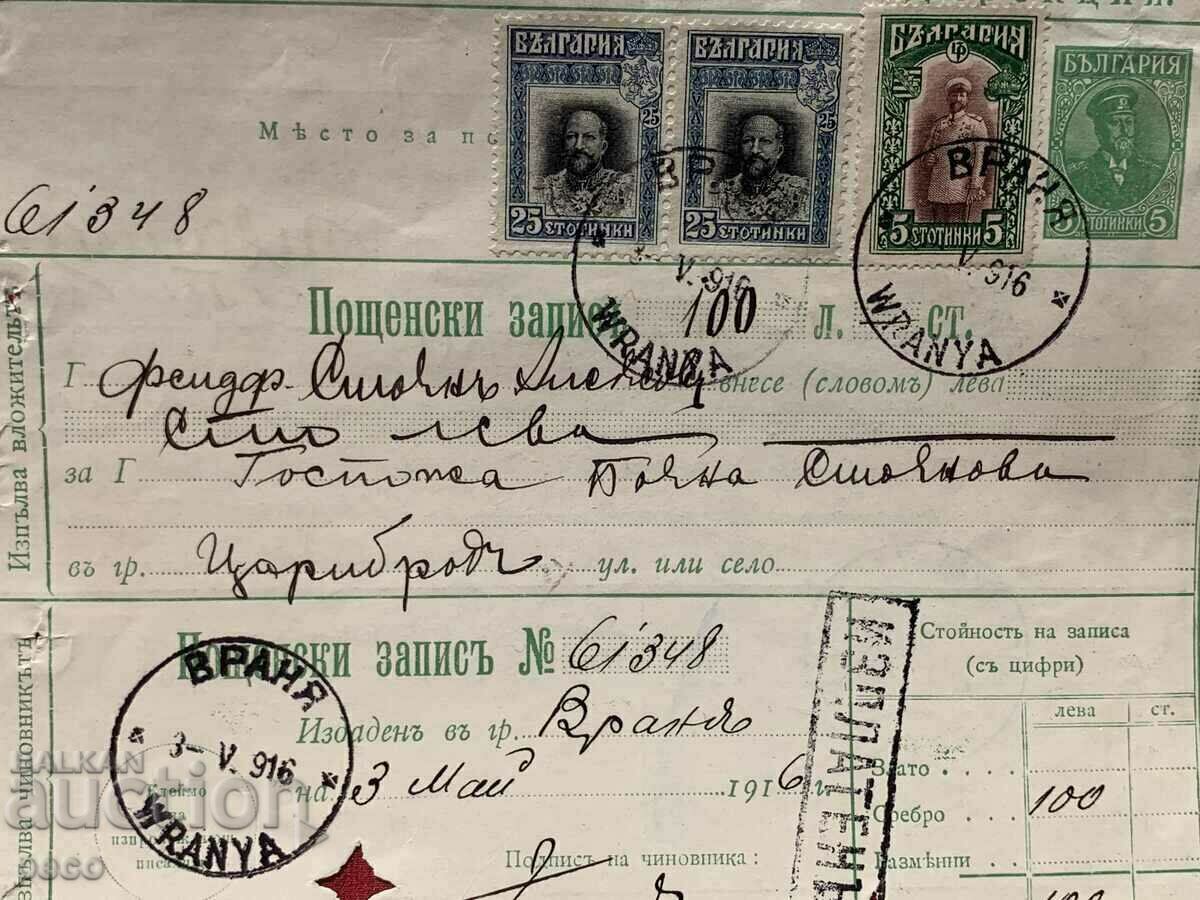 БЪЛГАРИЯ
25
25 СТОТИНКИ
БЪЛГАРИЯ
25
25 СТОТИНКИ
БЪЛГАРИЯ
5 СТОТИНКИ 5
БЪЛГАРИЯ
5 СТОТИНКИ 5
Мѣсто за по
61348
ВРАНЯ
3-V.916
WRANYA
ВРАНЯ
V.916
WRANYA
Пощенски запис 100 л. ст.
Изпълва вложительтъ
Г Фелдф. Стоянъ внесе (словомъ) лева
Сто лева
за Г Госпожа Бояна Стоянова
въ гр. Царибродъ ул. или село
Пощенски записъ № 61348
Изпълва чиновникътъ
Издаденъ въ гр. Враня
на 3 Май 1916 г.
ВРАНЯ
3-V.916
WRANYA
Клеймо
на
Подпист на чиновника:
ИЗПЛАТЕНЪ
Стойность на записа
(съ цифри)
лева ст.
Злато
Сребро 100
Размѣнни
100
BALKAN
auction